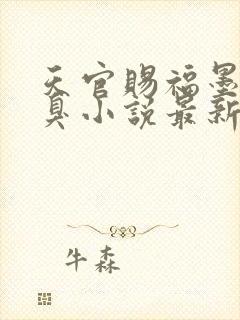 天官赐福墨
臭小说最新
牛森